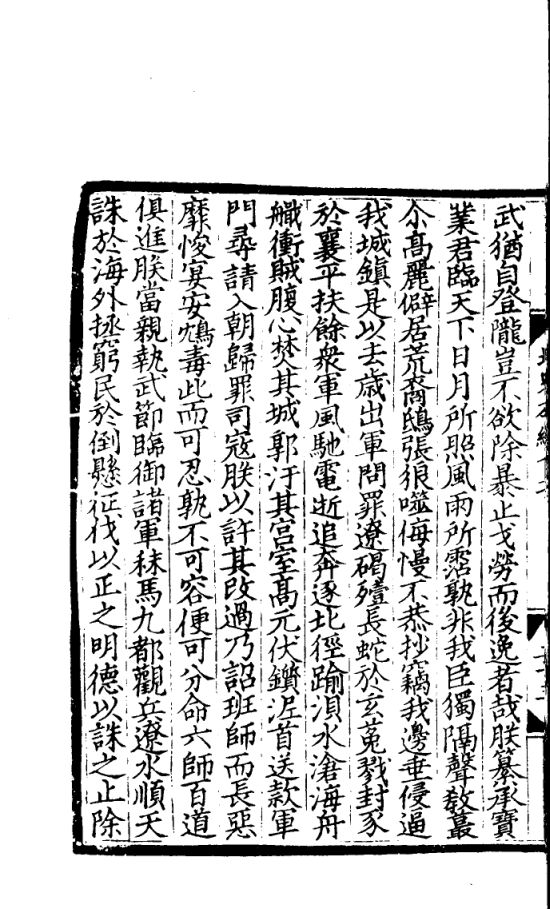 武猶自登隴豈不欲除暴止戈勞而後逸者哉朕纂承寶
業君臨天下日月所照風雨所霑孰非我臣獨隔聲教蕞
尒高麗僻居荒裔鴟張狼噬侮慢不恭抄竊我邊垂侵逼
我城鎮是以去歳出軍問罪遼碣殪長蛇於玄菟戮封豕
於襄平扶餘衆軍風馳電逝追奔逐北徑踰浿水滄海舟
檝衝賊腹心焚其城郭汙其宫室高元伏鑕泥首送款軍
門尋請入朝歸罪司寇朕以許其改過乃詔班師而長惡
靡悛宴安鴆毒此而可忍孰不可容便可分命六師百道
俱進朕當親執武節臨御諸軍秣馬九都觀兵遼水順天
誅於海外拯窮民於倒懸征伐以正之明德以誅之止除